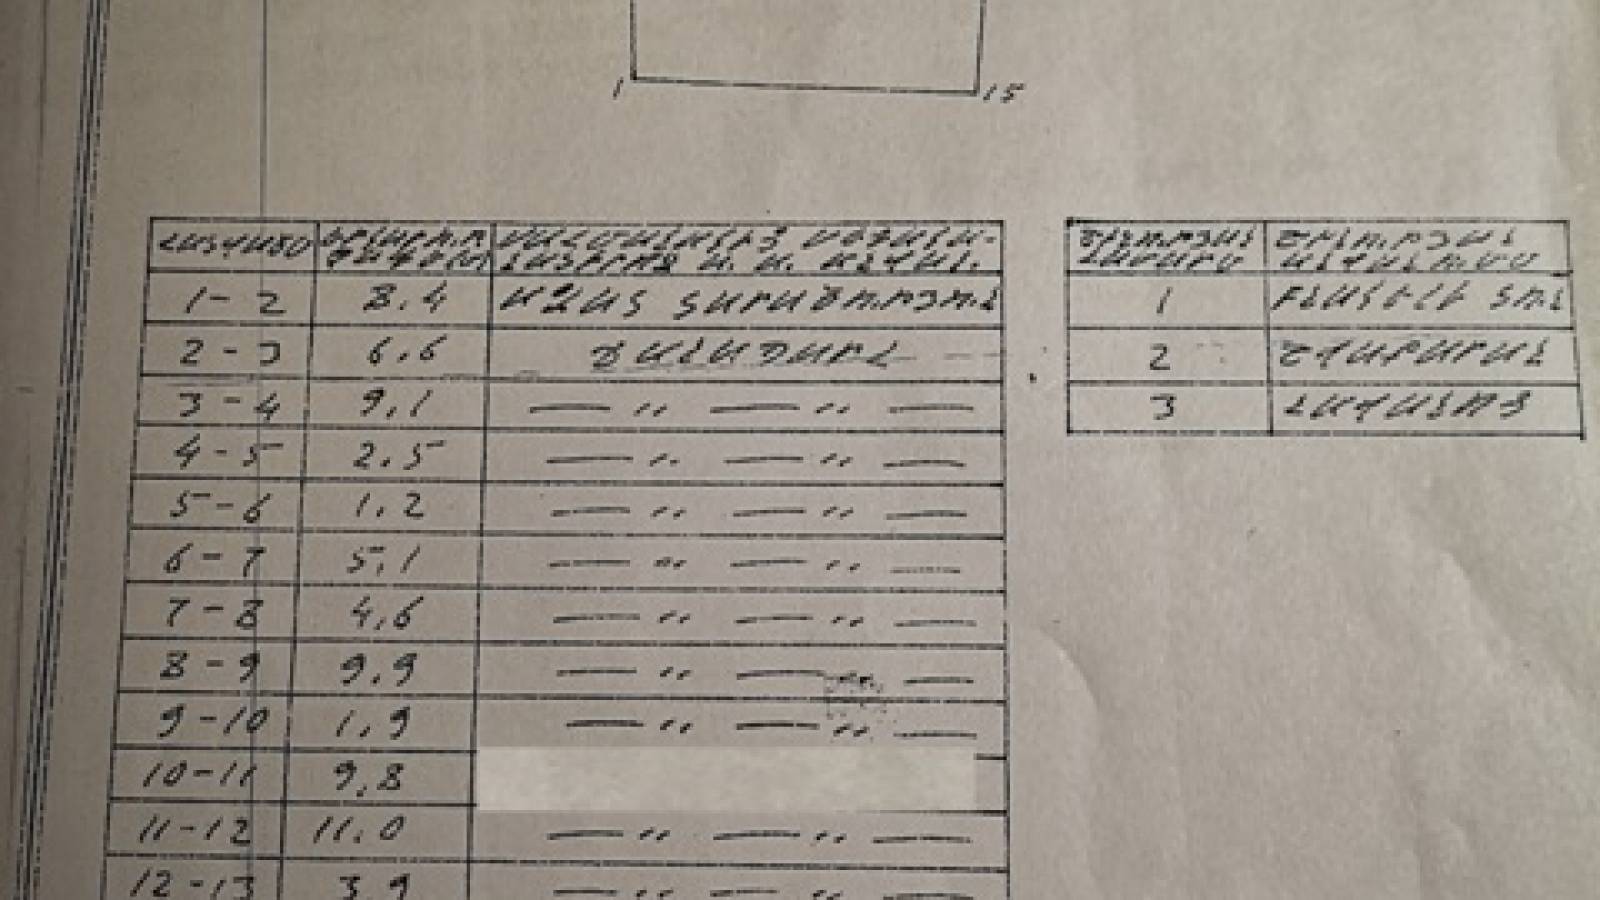 1 15
ՀԱՏՎԱԾԸ
ՇԻՆՈՒԹՅԱՆ ՇԻՆՈՒԹՅԱՆ
ՀԱՄԱՐԸ ԱՆՎԱՆՈՒՄԸ
1-2 8.4 ԱԶԱՏ ՏԱՐԱԾՈՒԹՅՈՒՆ 1 ԲՆԱԿԵԼԻ ՏՈՒՆ
2-3 6.6 ՃԱՆԱՊԱՐՀ 2
3-4 9,1 — ,, — ,, — 3 ՀԱՎԱՆՈՑ
4-5 2.5 — ,, — ,, —
5-6 1.2 — ,, — ,, —
6-7 5,1 — ,, — ,, —
7-8 4,6 — ,, — ,, —
8-9 9.9 — ,, — —
9-10 1.9 — ,, — ,, —
10-11 9,8
11-12 11.0 — ,, — ,, —
12-13 3.9 — ,, — ,, —